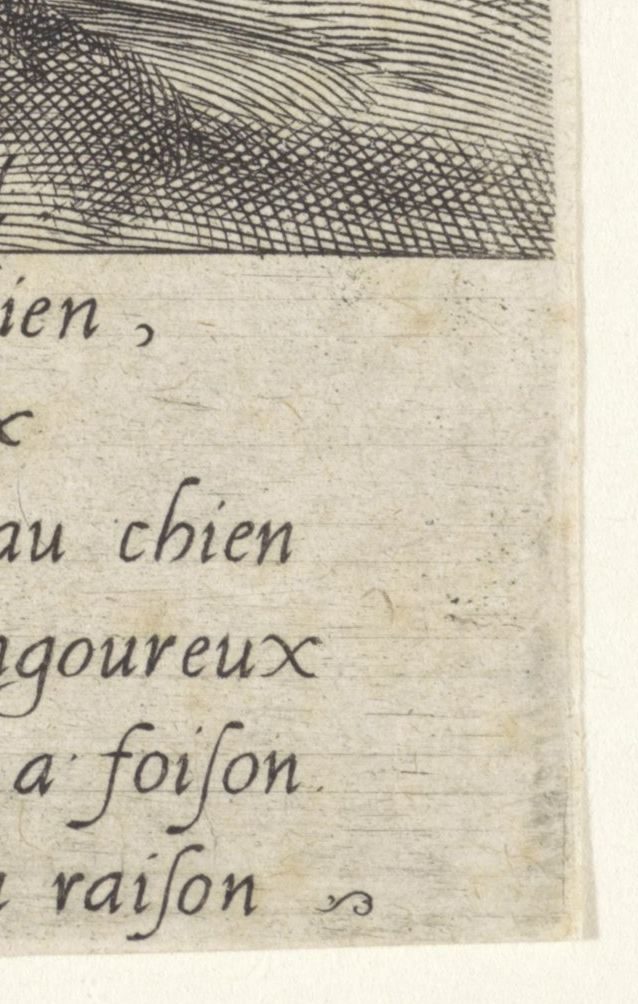 ien ,
x
au chien
ngoureux
a foiſon
raiſon